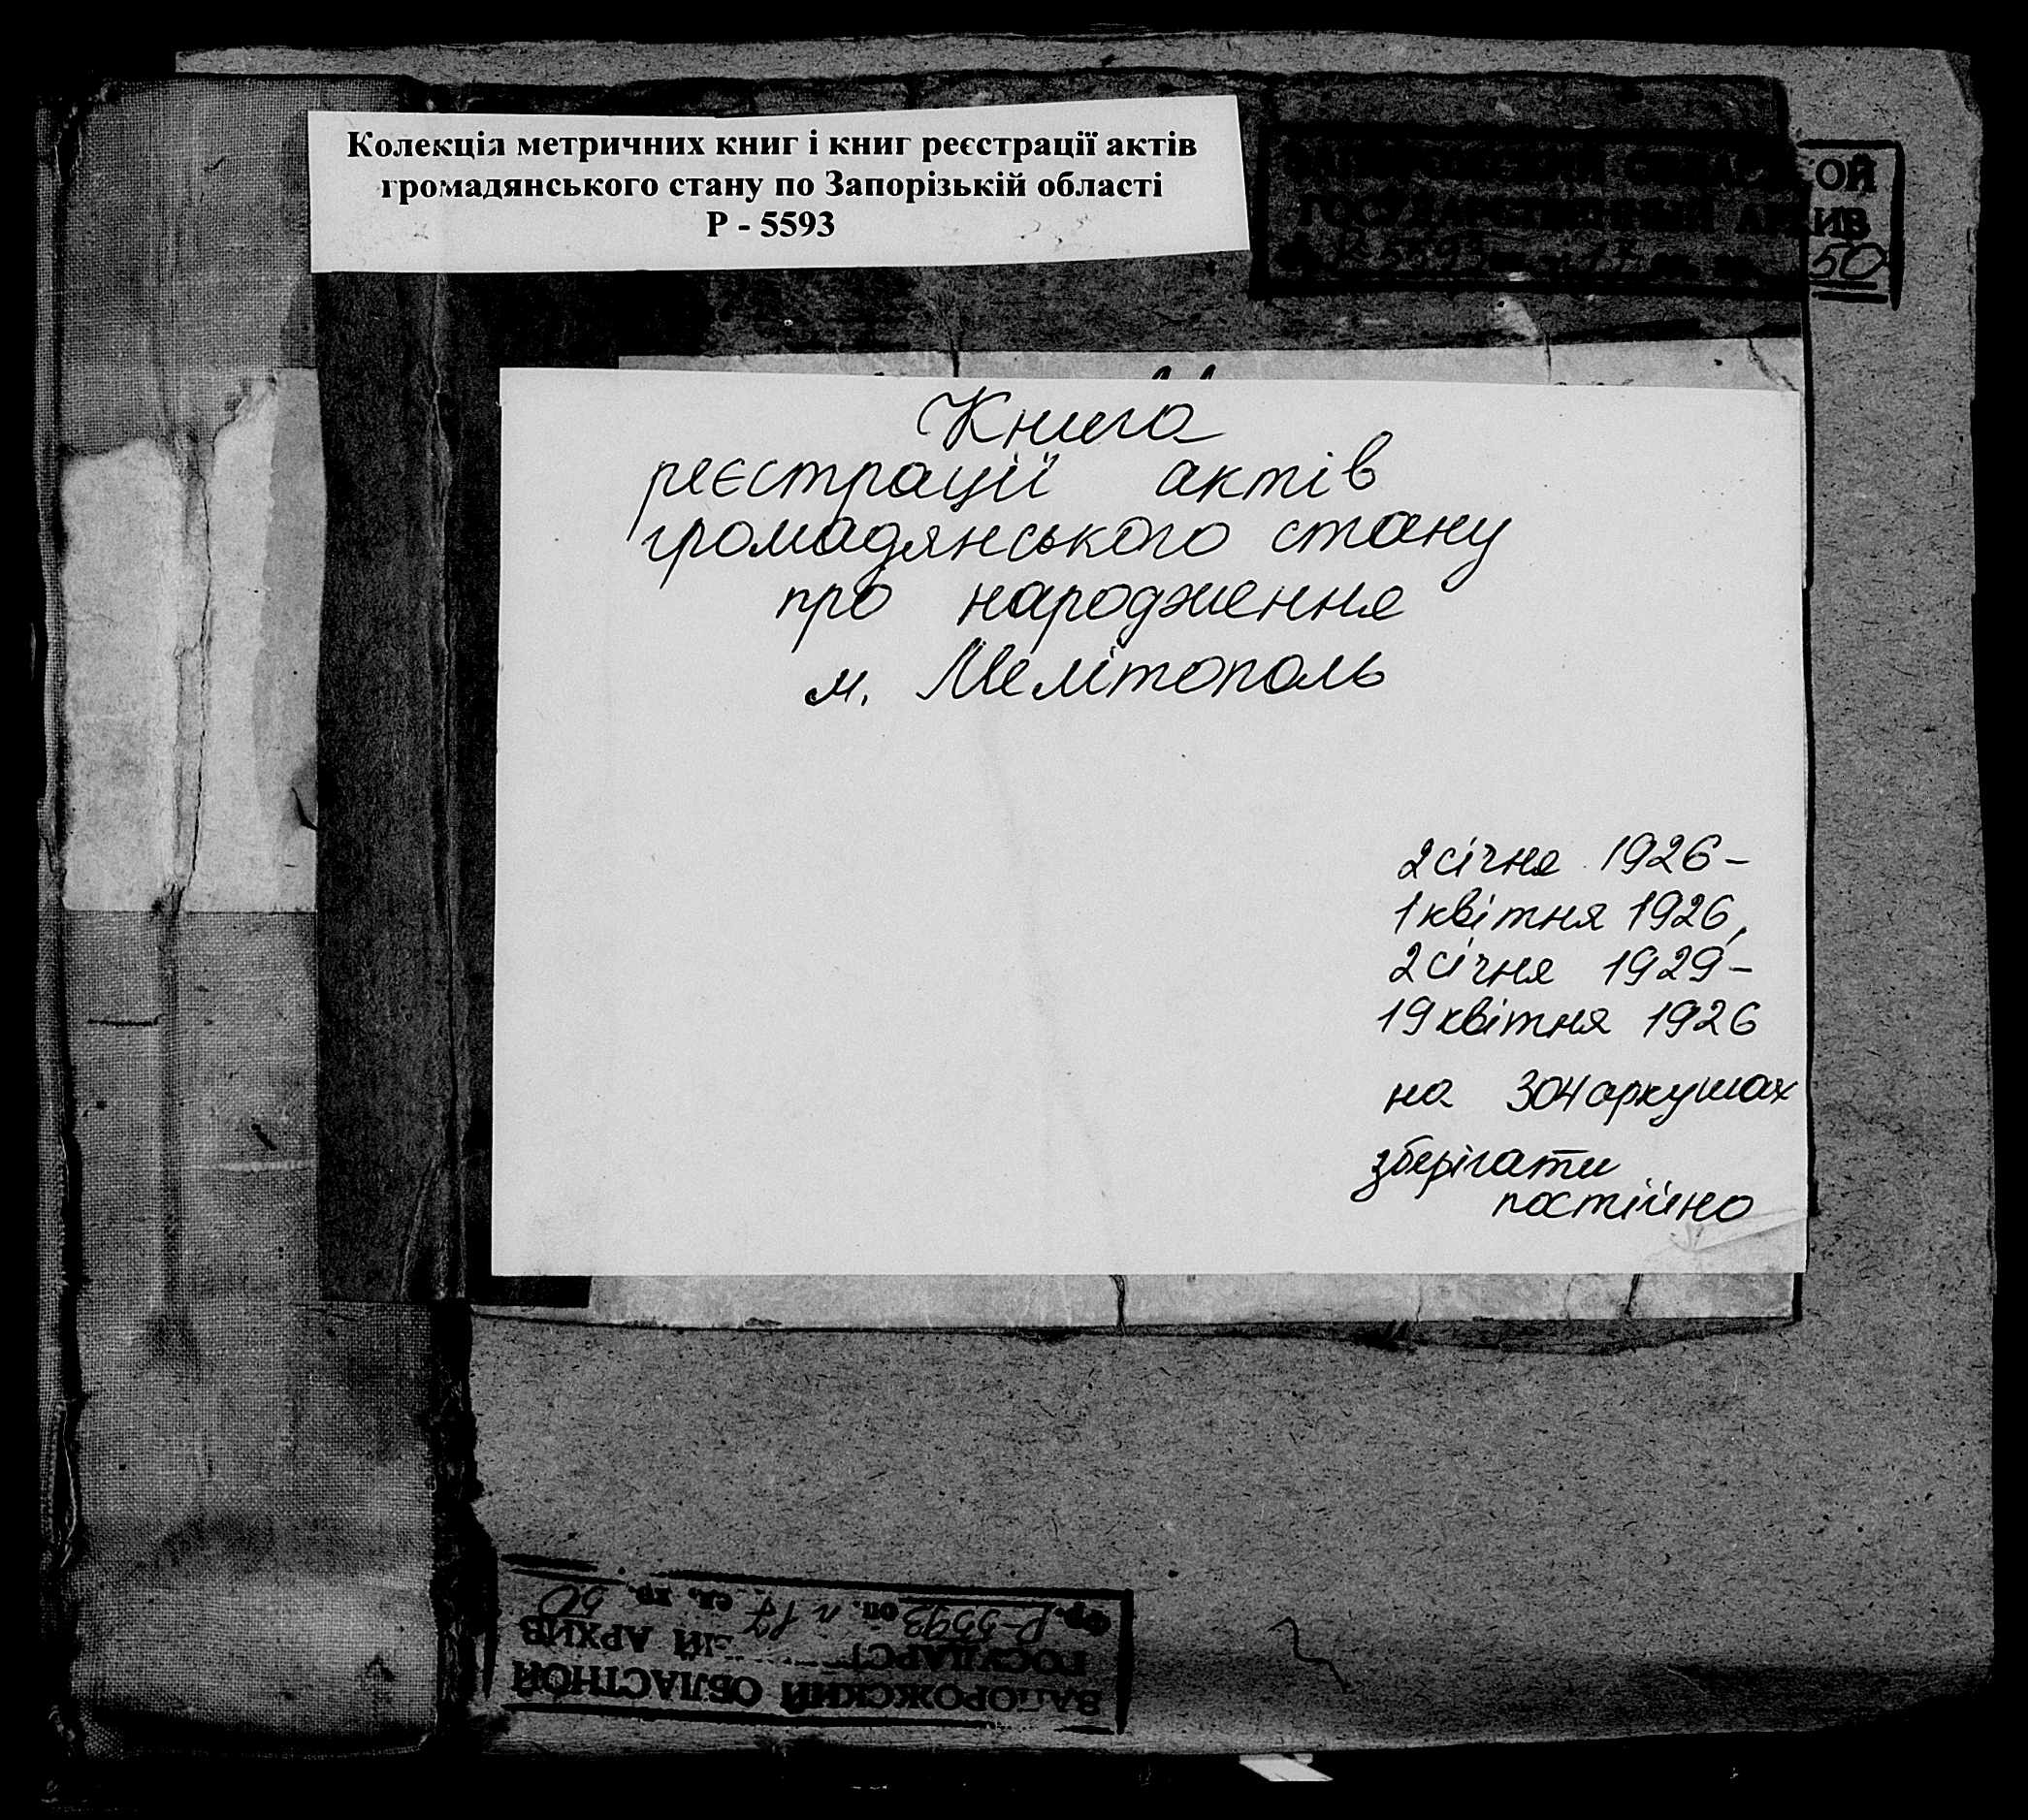 Колекція метричних книг і книг реєстрації актів
громадянського стану по Запорізькій області
Р - 5593
ЗАПОРОЖСКИЙ ОБЛАСТНОЙ
ГОСУДАРСТВЕННЫЙ АРХИВ
Р-5593 17 50
Книга
реєстрації актів
громадянського стану
про народження
м. Мелітополь
2 січня 1926 -
1 квітня 1926,
2 січня 1929 -
19 квітня 1926
на 304 аркушах
зберігати
постійно
ЗАПОРОЖСКИЙ ОБЛАСТНОЙ
ГОСУДАРСТ ЫЙ АРХИВ
Фр. Р-5593 оп. л 17 ед. хр. 50